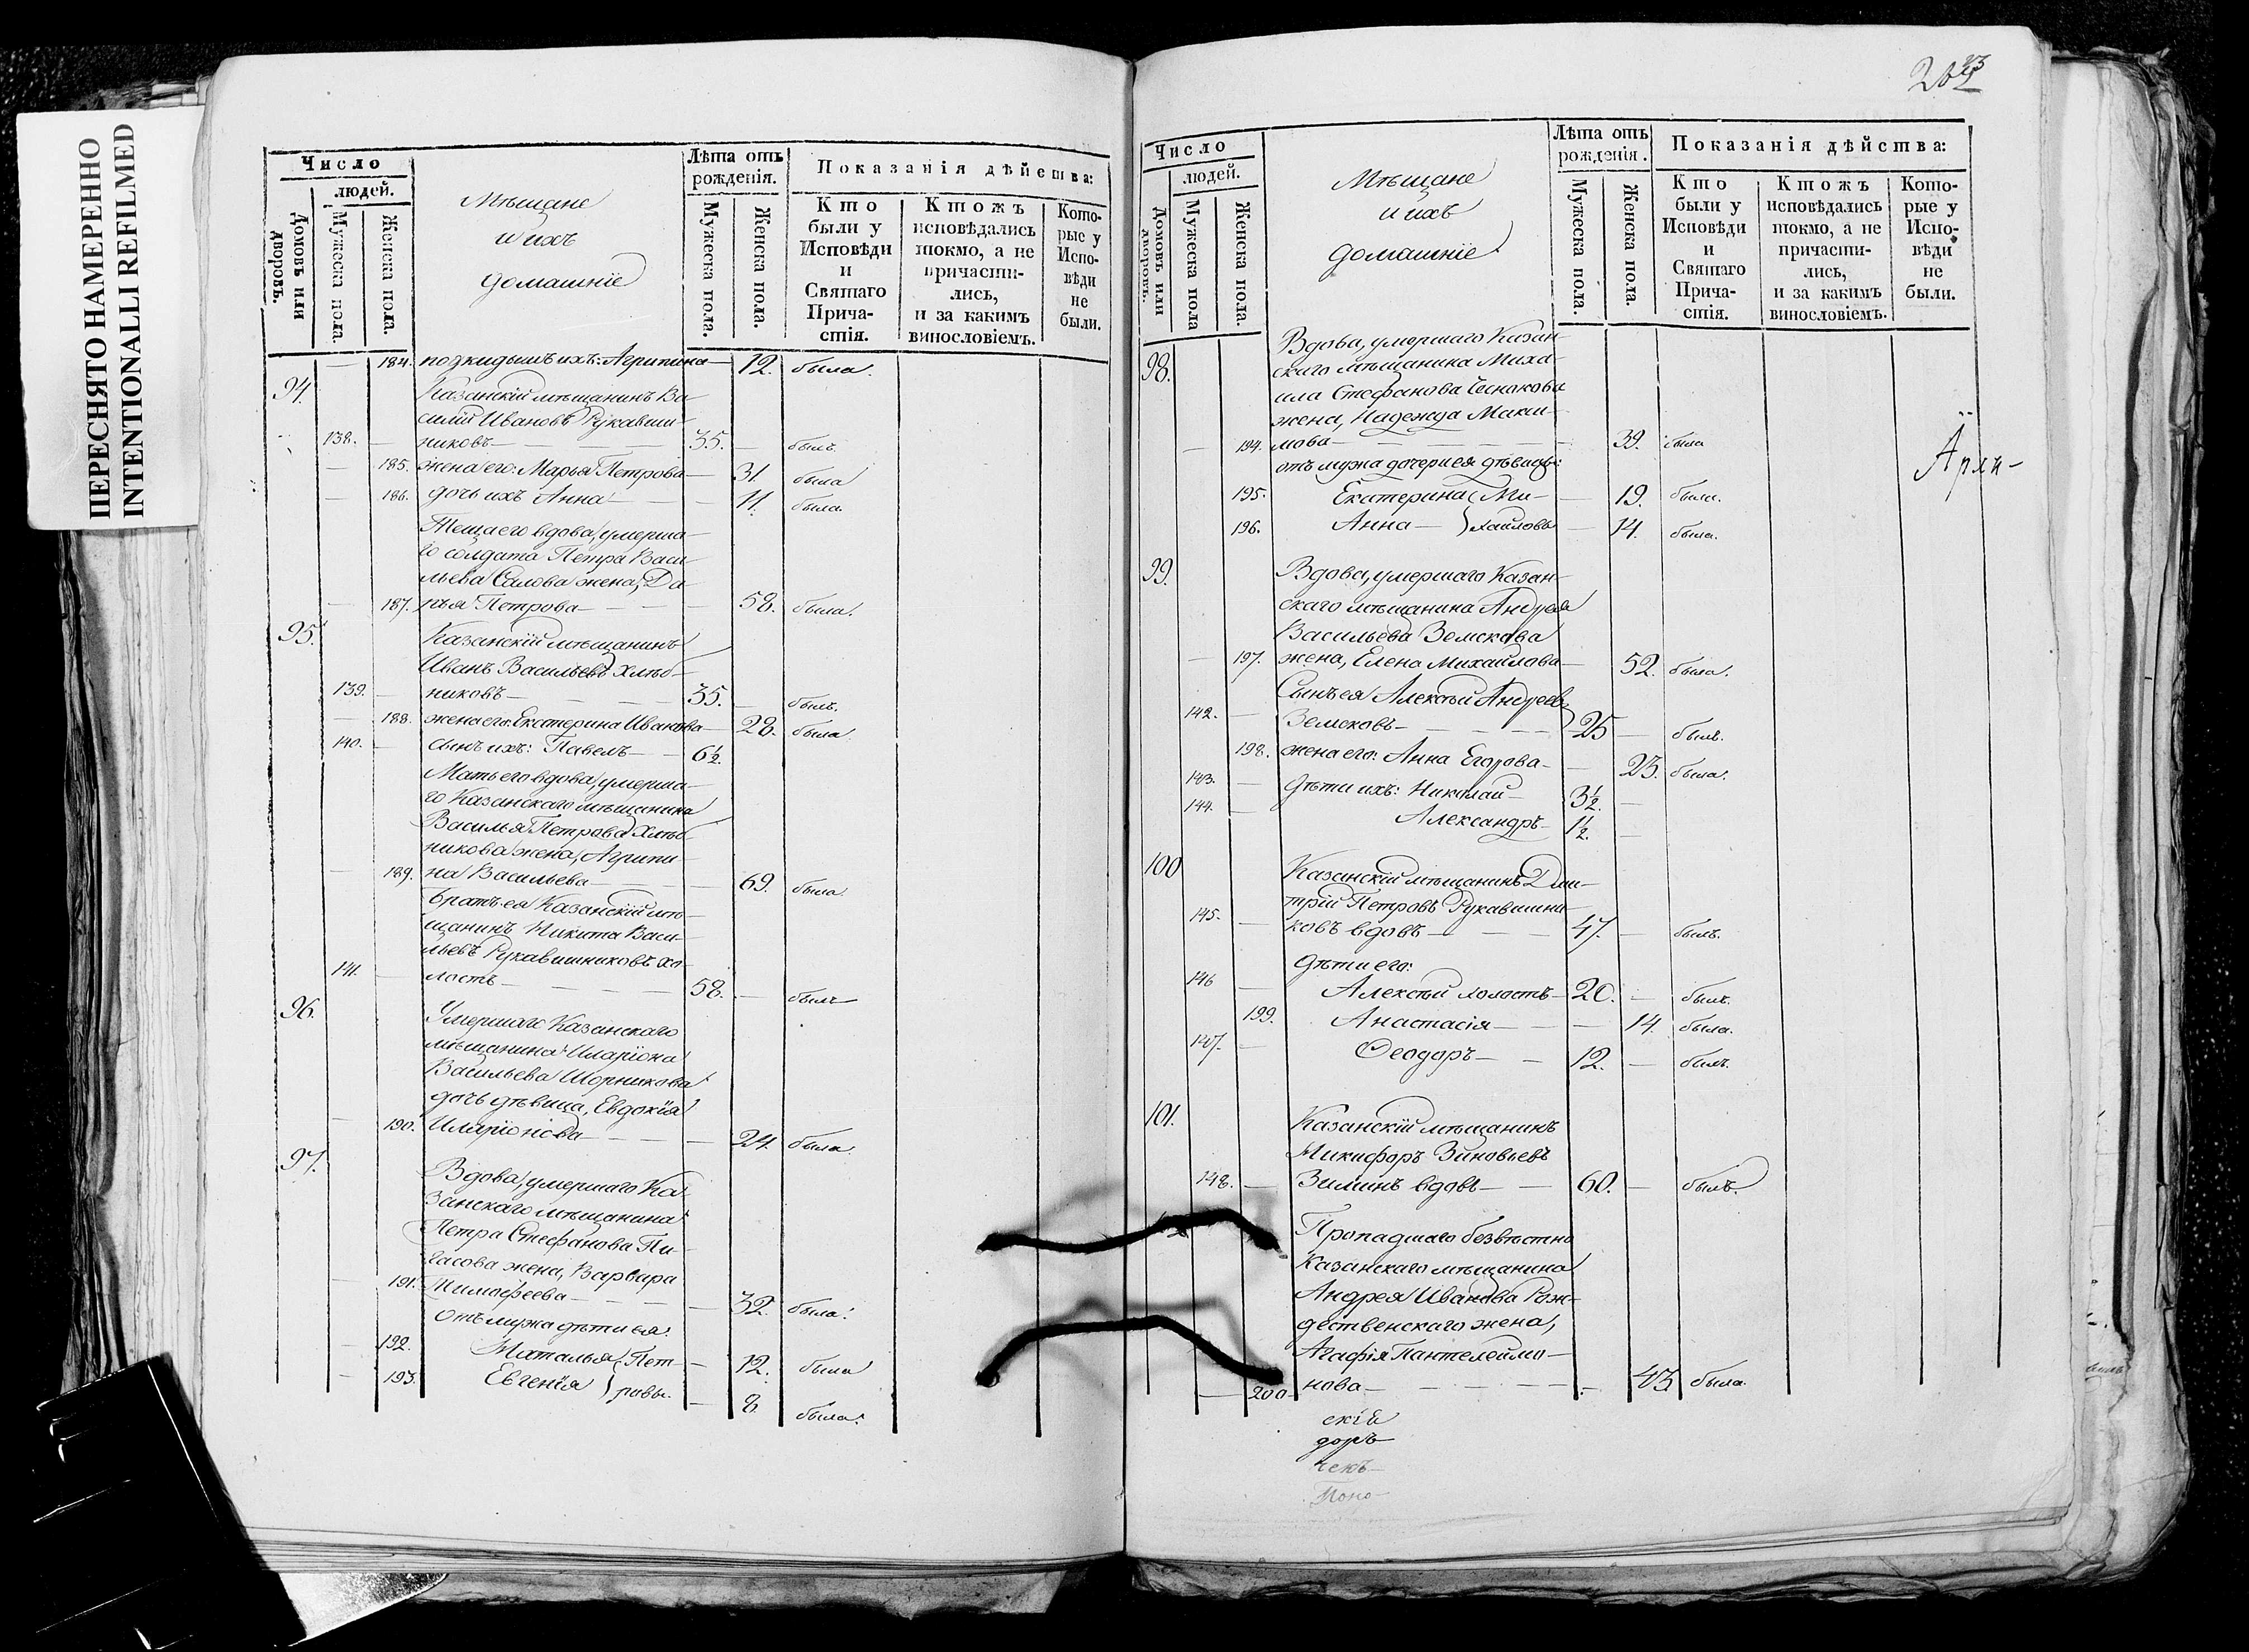 ПЕРЕСНЯТО НАМЕРЕННО
INTENTIONALLI REFILMED
Число
людей.
Домовъ или дворовъ.
Мужеска пола.
Женска пола.
Мѣщане
и ихъ
домашніе
Лѣта отъ рожденія.
Мужеска пола.
Женска пола.
Показанія дѣйства:
Кто были у Исповѣди и Святаго Причастія.
Ктожъ исповѣдались токмо, а не причастились, и за какимъ винословіемъ.
Которые у Исповѣди не были.
184. подкидышъ ихъ: Агрипина 12. была.
94. Казанскій мѣщанинъ Ва-
силій Ивановъ Рукавиш-
138. никовъ 35. былъ.
185. жена его: Марья Петрова 31 была
186. дочь ихъ Анна 11. была.
Теща его вдова, умерша-
го солдата Петра Васи-
льева Салова жена, Да-
187. рья Петрова 58. была.
95. Казанскій мѣщанинъ
Иванъ Васильевъ Хлѣб-
139. никовъ 35. былъ.
188. жена его: Екатерина Иванова 28. была.
140. сынъ ихъ: Павелъ 6½.
Мать его вдова, умерша-
го Казанскаго мѣщанина
Василья Петрова Хлѣб-
никова жена, Агрипи-
189. на Васильева 69. была.
братъ ея Казанскій мѣ-
щанинъ Никита Васи-
льевъ Рукавишниковъ хо-
141. лостъ 58. былъ
96. Умершаго Казанскаго
мѣщанина Иларіона
Васильева Шорникова
дочь дѣвица, Евдокія
190. Иларіонова 24. была.
97. Вдова, умершаго Ка-
занскаго мѣщанина
Петра Стефанова Пи-
гасова жена, Варвара
191. Тимофеева 32. была.
отъ мужа дѣти ея:
192. Наталья Пет- 12. была
193. Евгенія ровы. 8. была.
Число
людей.
Домовъ или дворовъ.
Мужеска пола
Женска пола.
Мѣщане
и ихъ
домашніе
Лѣта отъ рожденія.
Мужеска пола.
Женска пола.
Показанія дѣйства:
Кто были у Исповѣди и Святаго Причастія.
Ктожъ исповѣдались токмо, а не причастились, и за какимъ винословіемъ.
Которые у Исповѣди не были.
98. Вдова, умершаго Казан-
скаго мѣщанина Миха-
ила Стефанова Чеснокова
жена, Надежда Макси-
194. мова 39. была
отъ мужа дочери ея дѣвицы:
195. Екатерина Ми- 19. была.
196. Анна хайловы 14. была.
99. Вдова, умершаго Казан-
скаго мѣщанина Андрея
Васильева Земскова
197. жена, Елена Михайлова 52. была.
Сынъ ея Алексѣй Андреевъ
142. Земсковъ 25 былъ.
198. жена его: Анна Егорова 23. была.
143. дѣти ихъ: Николай 3½.
144. Александръ 1½.
100 Казанскій мѣщанинъ Дми-
трій Петровъ Рукавишни-
145. ковъ вдовъ 47. былъ.
дѣти его:
146 Алексѣй холостъ 20. былъ.
199. Анастасія 14. была.
147. Ѳеодоръ 12. былъ.
101. Казанскій мѣщанинъ
Никифоръ Зиновьевъ
148. Зиминъ вдовъ 60. былъ.
Пропадшаго безвѣстно
Казанскаго мѣщанина
Андрея Иванова Рож-
дественскаго жена,
Агафія Пантелеймо-
200 нова 43 была.
скій
доръ
Поно-
Арлн-